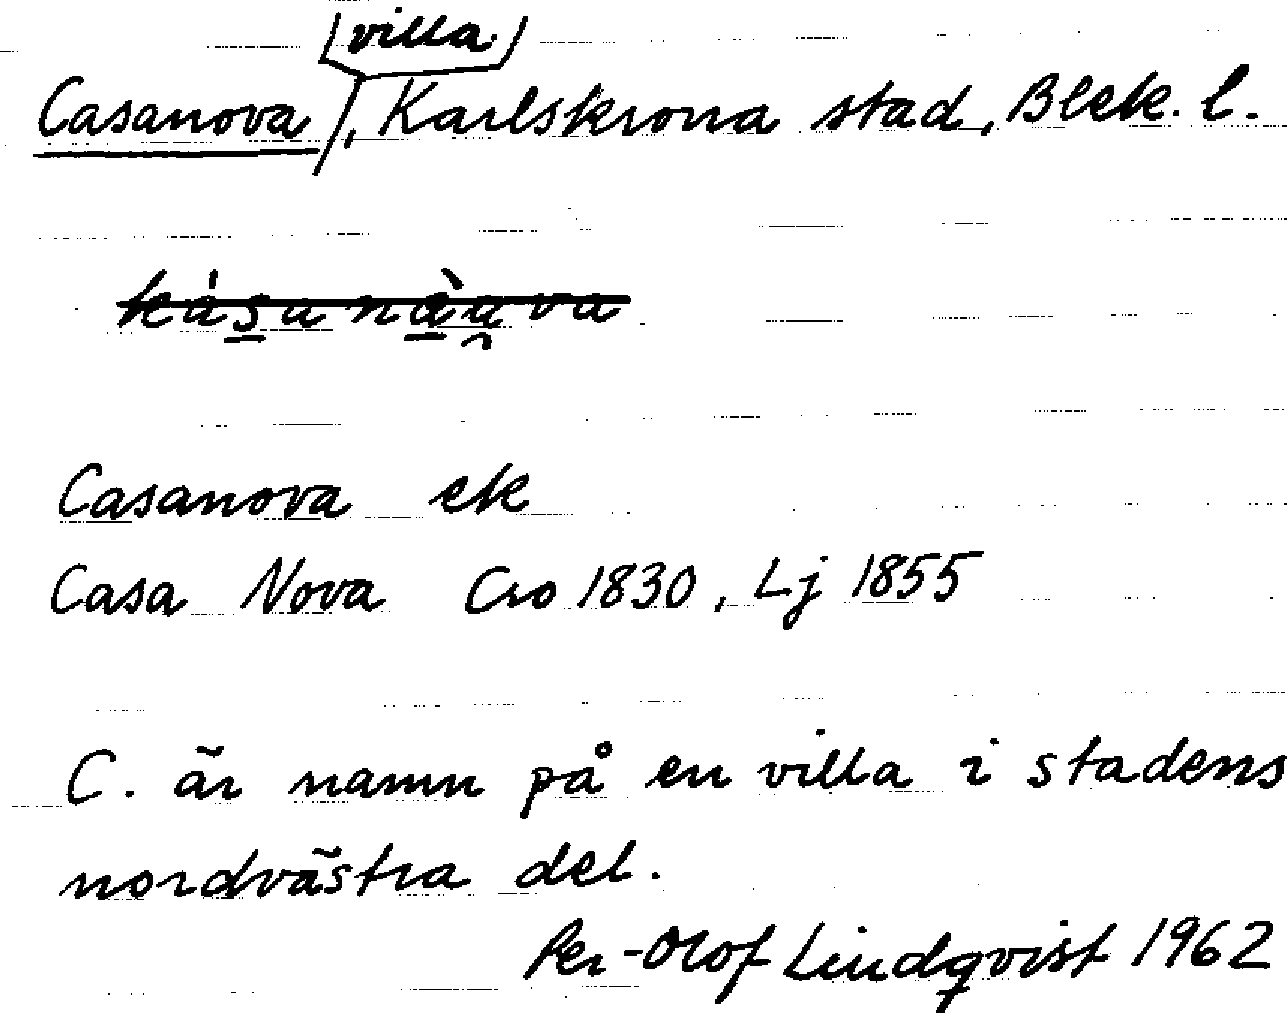 (villa)
Casanova, Karlskrona stad, Blek. l.
Casanova ek
Casa Nova Cro 1830, Lj 1855
C. är namn på en villa i stadens
nordvästra del.
Per-Olof Lindqvist 1962